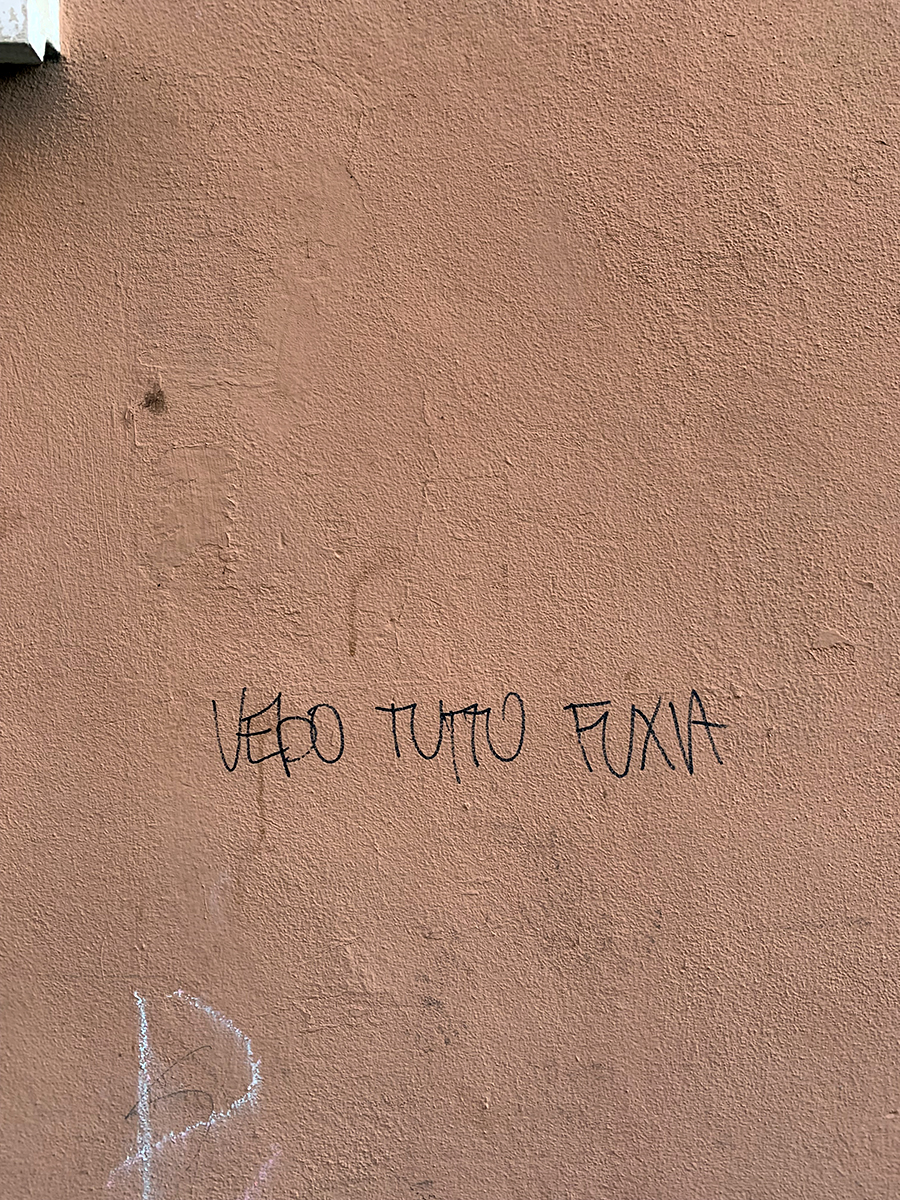 VEDO TUTTO FUXIA
P